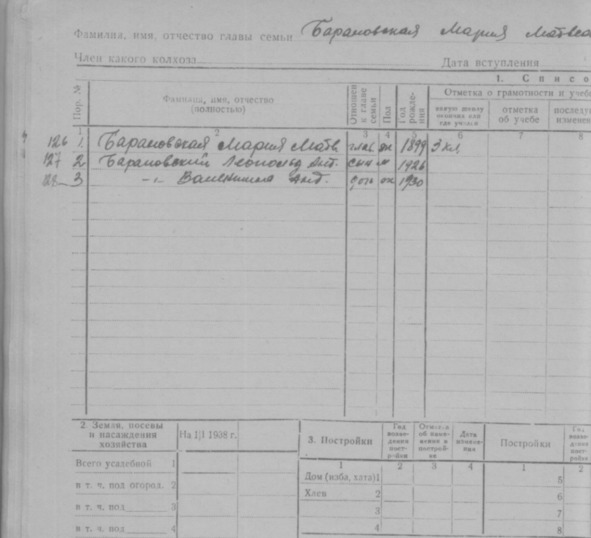 Фамилия, имя, отчество главы семьи Барановская Мария Матвеа
Член какого колхоза Дата вступления
1. Списо
Пор. №
Фамилия, имя, отчество (полностью)
Отношен. к главе семьи
Пол
Год рождения
Отметка о грамотности и учебе
какую школу окончил или где учился
отметка об учебе
последую изменен
1 2 3 4 5 6 7 8
126 1 Барановская Мария Матв глав ж 1899 3 кл
127 2 Барановский Леонольд Ант. сын м 1926
128 3 -"- Валентина Ант. дочь ж 1930
2. Земли, посевы и насаждения хозяйства
На 1/I 1958 г.
Всего усадебной 1
в т. ч. под огород. 2
в т. ч. под 3
в т. ч. под 4
3. Постройки
Год возведения постройки
Дата
Постройки
Год возведения постройки
1 2 3 4 1 2
Дом (изба, хата) 1 5
Хлев 2 6
3 7
4 8